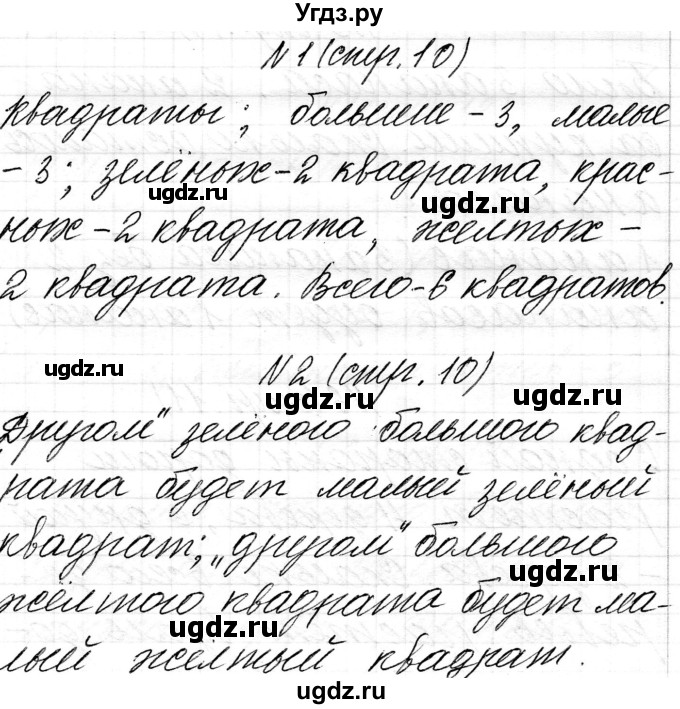 Угдз.ру
N1 (стр. 10)
квадраты; большие - 3, малые
- 3; зелёных - 2 квадрата, крас-
ugdz.ru
ugdz.ru
ных - 2 квадрата, желтых -
2 квадрата. Всего - 6 квадратов.
N2 (стр. 10)
ugdz.ru
ugdz.ru
ugdz.ru
Другом" зелёного большого квад-
рата будет малый зелёный
квадрат; „другом" большого
ugdz.ru
ugdz.ru
жёлтого квадрата будет ма-
ugdz.ru
лый жёлтый квадрат.
ugdz.ru